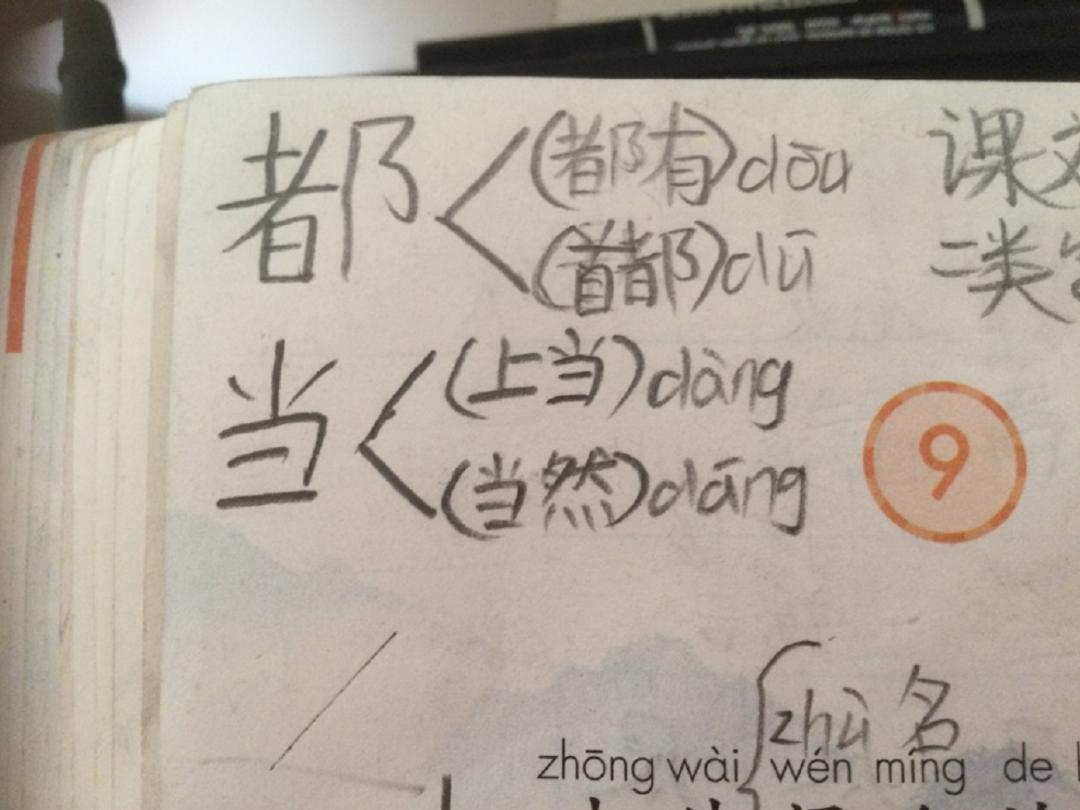 都 (都有) dōu 课文
(首都) dū 二类
当 (上当) dàng
(当然) dāng
9
zhù 名
zhōng wài wén míng de